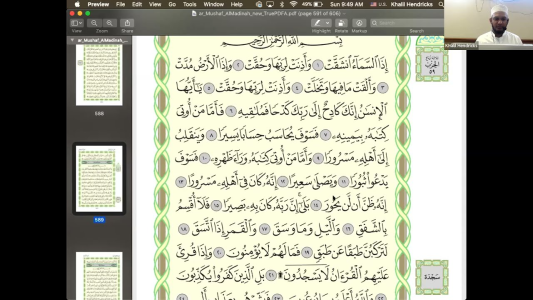 Preview File Edit View Go Tools Window Help
49% Sun 9:49 AM Khalil Hendricks
ar_Mushaf_AlMadinah_new_TruePDFA.pdf (page 591 of 606)
View Zoom Share Highlight Rotate Markup Search
ar_Mushaf_AlMadinah_...
588
589
Khalil Hendricks
بِسْمِ اللَّهِ الرَّحْمَٰنِ الرَّحِيمِ
إِذَا السَّمَاءُ انشَقَّتْ ١ وَأَذِنَتْ لِرَبِّهَا وَحُقَّتْ ٢ وَإِذَا الْأَرْضُ مُدَّتْ
٣ وَأَلْقَتْ مَا فِيهَا وَتَخَلَّتْ ٤ وَأَذِنَتْ لِرَبِّهَا وَحُقَّتْ ٥ يَا أَيُّهَا
الْإِنسَانُ إِنَّكَ كَادِحٌ إِلَىٰ رَبِّكَ كَدْحًا فَمُلَاقِيهِ ٦ فَأَمَّا مَنْ أُوتِيَ
كِتَابَهُ بِيَمِينِهِ ٧ فَسَوْفَ يُحَاسَبُ حِسَابًا يَسِيرًا ٨ وَيَنقَلِبُ
إِلَىٰ أَهْلِهِ مَسْرُورًا ٩ وَأَمَّا مَنْ أُوتِيَ كِتَابَهُ وَرَاءَ ظَهْرِهِ ١٠ فَسَوْفَ
يَدْعُو ثُبُورًا ١١ وَيَصْلَىٰ سَعِيرًا ١٢ إِنَّهُ كَانَ فِي أَهْلِهِ مَسْرُورًا ١٣
إِنَّهُ ظَنَّ أَن لَّن يَحُورَ ١٤ بَلَىٰ إِنَّ رَبَّهُ كَانَ بِهِ بَصِيرًا ١٥ فَلَا أُقْسِمُ
بِالشَّفَقِ ١٦ وَاللَّيْلِ وَمَا وَسَقَ ١٧ وَالْقَمَرِ إِذَا اتَّسَقَ ١٨
لَتَرْكَبُنَّ طَبَقًا عَن طَبَقٍ ١٩ فَمَا لَهُمْ لَا يُؤْمِنُونَ ٢٠ وَإِذَا قُرِئَ
عَلَيْهِمُ الْقُرْآنُ لَا يَسْجُدُونَ ۩ ٢١ بَلِ الَّذِينَ كَفَرُوا يُكَذِّبُونَ
الحزب
٥٩
سجدة